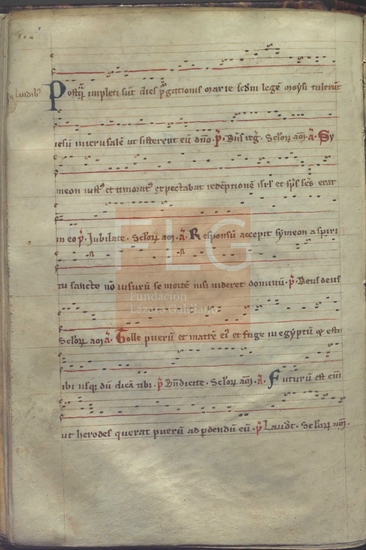 Postq̄ impleti sūt dies p̄gationis marie scdm̄ legē moysi tulerūt
iesū in ierusalē ut sisterent eū dn̄o. p̄. Dn̄s reḡ. Sclor̄ am̄. A. Sy
meon iust᷒ et timorat᷒ expectabat redēptionē isrl̄ et sp̄s sc̄s erat
in eo p̄. Jubilate. Sclor̄ am̄. A. Responsū accepit symeon a spiri
tu sancto nō visurū se mortē nisi videret dominū. p̄. Deus deus
FLG
Fundación
Lázaro Galdiano
Sclor̄ am̄ A. Tolle puerū et matrē ei᷒ et fuge in egyptū et esto
ibi usq̄ dū dicā tibi. p̄. Bn̄dicite. Sclor̄ am̄. A. Futurū est enī
ut herodes querat puerū ad p̄dendū eū. p̄ Laudt̄. Sclor̄ am̄.